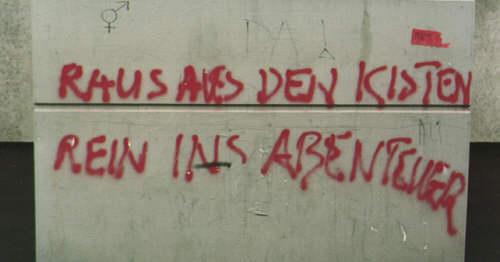 RAUS AUS DEN KISTEN
REIN INS ABENTEUER